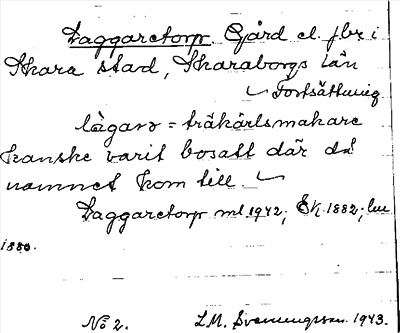 Laggaretorp. Gård el. jbr i
Skara stad, Skaraborgs län
Fortsättning
lägare = träkärlsmakare
kanske varit bosatt där då
namnet kom till.
Laggaretorp ml 1942; Ek. 1882;
1880.
No 2. L.M. Svenungsson 1943.